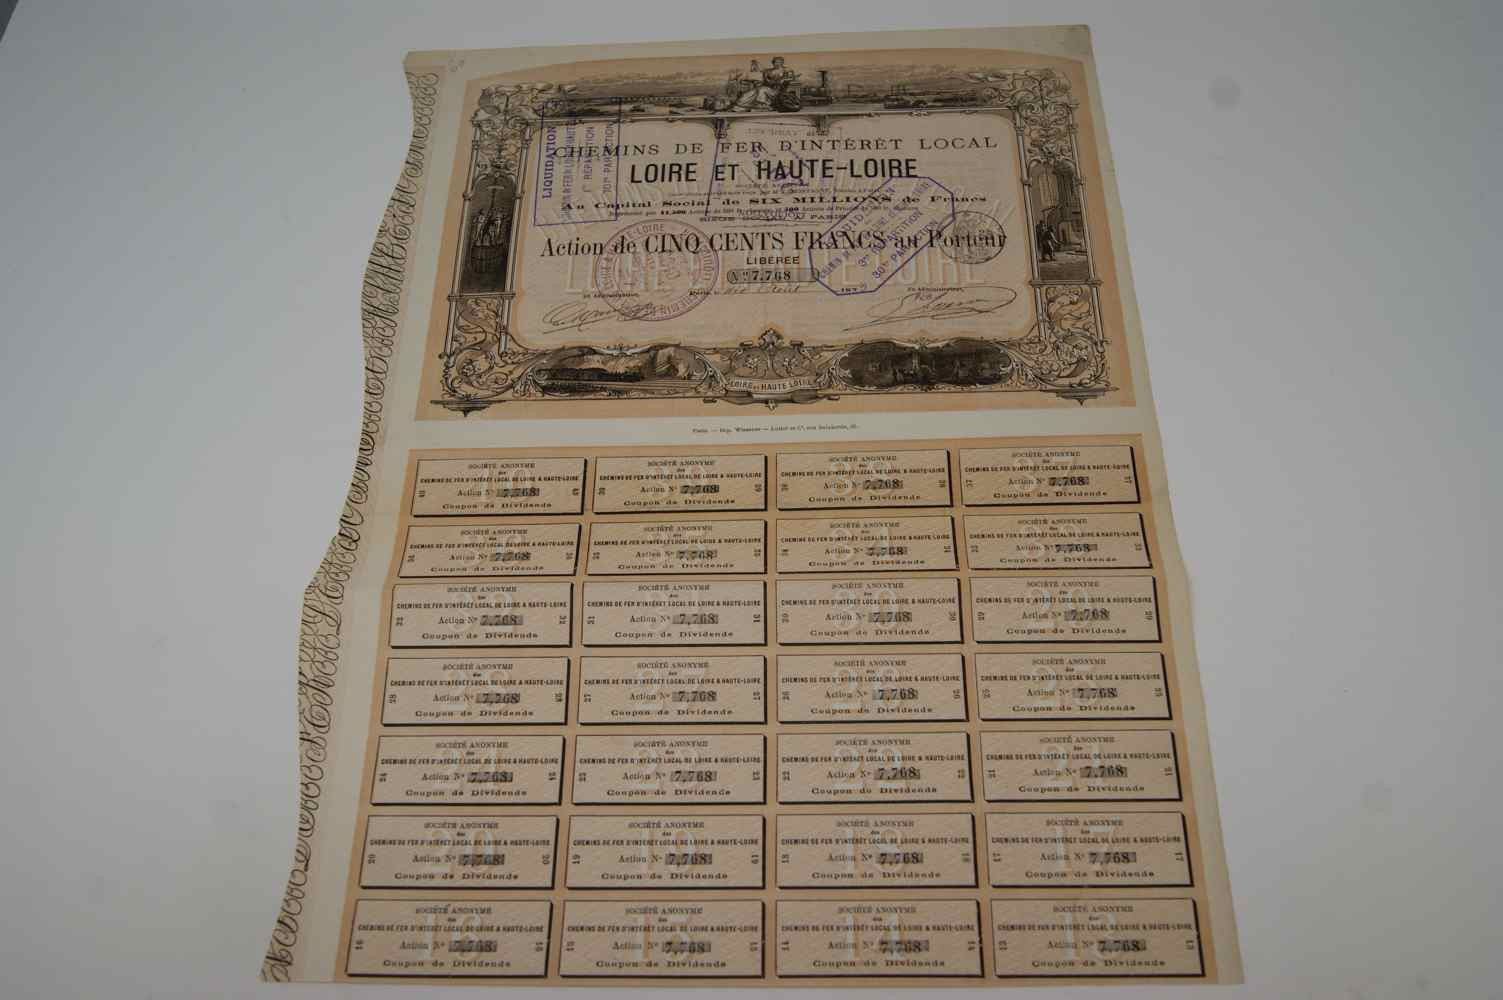 CHEMINS DE FER D'INTÉRÊT LOCAL
LOIRE ET HAUTE-LOIRE
SOCIÉTÉ ANONYME
Au Capital Social de SIX MILLIONS de Francs
SIÈGE SOCIAL À PARIS
Action de CINQ CENTS FRANCS au Porteur
LIBÉRÉE
Nº 7,768
Un Administrateur,
Un Administrateur,
LIQUIDATION
1re RÉPARTITION
3me RÉPARTITION
LOIRE ET HAUTE LOIRE
Paris. — Imp. Wiesener
SOCIÉTÉ ANONYME
des
CHEMINS DE FER D'INTÉRÊT LOCAL DE LOIRE & HAUTE-LOIRE
40 Action Nº 7,768 40
Coupon de Dividende
SOCIÉTÉ ANONYME
des
CHEMINS DE FER D'INTÉRÊT LOCAL DE LOIRE & HAUTE-LOIRE
39 Action Nº 7,768 39
Coupon de Dividende
SOCIÉTÉ ANONYME
des
CHEMINS DE FER D'INTÉRÊT LOCAL DE LOIRE & HAUTE-LOIRE
38 Action Nº 7,768 38
Coupon de Dividende
SOCIÉTÉ ANONYME
des
CHEMINS DE FER D'INTÉRÊT LOCAL DE LOIRE & HAUTE-LOIRE
37 Action Nº 7,768 37
Coupon de Dividende
SOCIÉTÉ ANONYME
des
CHEMINS DE FER D'INTÉRÊT LOCAL DE LOIRE & HAUTE-LOIRE
36 Action Nº 7,768 36
Coupon de Dividende
SOCIÉTÉ ANONYME
des
CHEMINS DE FER D'INTÉRÊT LOCAL DE LOIRE & HAUTE-LOIRE
35 Action Nº 7,768 35
Coupon de Dividende
SOCIÉTÉ ANONYME
des
CHEMINS DE FER D'INTÉRÊT LOCAL DE LOIRE & HAUTE-LOIRE
34 Action Nº 7,768 34
Coupon de Dividende
SOCIÉTÉ ANONYME
des
CHEMINS DE FER D'INTÉRÊT LOCAL DE LOIRE & HAUTE-LOIRE
33 Action Nº 7,768 33
Coupon de Dividende
SOCIÉTÉ ANONYME
des
CHEMINS DE FER D'INTÉRÊT LOCAL DE LOIRE & HAUTE-LOIRE
32 Action Nº 7,768 32
Coupon de Dividende
SOCIÉTÉ ANONYME
des
CHEMINS DE FER D'INTÉRÊT LOCAL DE LOIRE & HAUTE-LOIRE
31 Action Nº 7,768 31
Coupon de Dividende
SOCIÉTÉ ANONYME
des
CHEMINS DE FER D'INTÉRÊT LOCAL DE LOIRE & HAUTE-LOIRE
30 Action Nº 7,768 30
Coupon de Dividende
SOCIÉTÉ ANONYME
des
CHEMINS DE FER D'INTÉRÊT LOCAL DE LOIRE & HAUTE-LOIRE
29 Action Nº 7,768 29
Coupon de Dividende
SOCIÉTÉ ANONYME
des
CHEMINS DE FER D'INTÉRÊT LOCAL DE LOIRE & HAUTE-LOIRE
28 Action Nº 7,768 28
Coupon de Dividende
SOCIÉTÉ ANONYME
des
CHEMINS DE FER D'INTÉRÊT LOCAL DE LOIRE & HAUTE-LOIRE
27 Action Nº 7,768 27
Coupon de Dividende
SOCIÉTÉ ANONYME
des
CHEMINS DE FER D'INTÉRÊT LOCAL DE LOIRE & HAUTE-LOIRE
26 Action Nº 7,768 26
Coupon de Dividende
SOCIÉTÉ ANONYME
des
CHEMINS DE FER D'INTÉRÊT LOCAL DE LOIRE & HAUTE-LOIRE
25 Action Nº 7,768 25
Coupon de Dividende
SOCIÉTÉ ANONYME
des
CHEMINS DE FER D'INTÉRÊT LOCAL DE LOIRE & HAUTE-LOIRE
24 Action Nº 7,768 24
Coupon de Dividende
SOCIÉTÉ ANONYME
des
CHEMINS DE FER D'INTÉRÊT LOCAL DE LOIRE & HAUTE-LOIRE
23 Action Nº 7,768 23
Coupon de Dividende
SOCIÉTÉ ANONYME
des
CHEMINS DE FER D'INTÉRÊT LOCAL DE LOIRE & HAUTE-LOIRE
22 Action Nº 7,768 22
Coupon de Dividende
SOCIÉTÉ ANONYME
des
CHEMINS DE FER D'INTÉRÊT LOCAL DE LOIRE & HAUTE-LOIRE
21 Action Nº 7,768 21
Coupon de Dividende
SOCIÉTÉ ANONYME
des
CHEMINS DE FER D'INTÉRÊT LOCAL DE LOIRE & HAUTE-LOIRE
20 Action Nº 7,768 20
Coupon de Dividende
SOCIÉTÉ ANONYME
des
CHEMINS DE FER D'INTÉRÊT LOCAL DE LOIRE & HAUTE-LOIRE
19 Action Nº 7,768 19
Coupon de Dividende
SOCIÉTÉ ANONYME
des
CHEMINS DE FER D'INTÉRÊT LOCAL DE LOIRE & HAUTE-LOIRE
18 Action Nº 7,768 18
Coupon de Dividende
SOCIÉTÉ ANONYME
des
CHEMINS DE FER D'INTÉRÊT LOCAL DE LOIRE & HAUTE-LOIRE
17 Action Nº 7,768 17
Coupon de Dividende
SOCIÉTÉ ANONYME
des
CHEMINS DE FER D'INTÉRÊT LOCAL DE LOIRE & HAUTE-LOIRE
16 Action Nº 7,768 16
Coupon de Dividende
SOCIÉTÉ ANONYME
des
CHEMINS DE FER D'INTÉRÊT LOCAL DE LOIRE & HAUTE-LOIRE
15 Action Nº 7,768 15
Coupon de Dividende
SOCIÉTÉ ANONYME
des
CHEMINS DE FER D'INTÉRÊT LOCAL DE LOIRE & HAUTE-LOIRE
14 Action Nº 7,768 14
Coupon de Dividende
SOCIÉTÉ ANONYME
des
CHEMINS DE FER D'INTÉRÊT LOCAL DE LOIRE & HAUTE-LOIRE
13 Action Nº 7,768 13
Coupon de Dividende